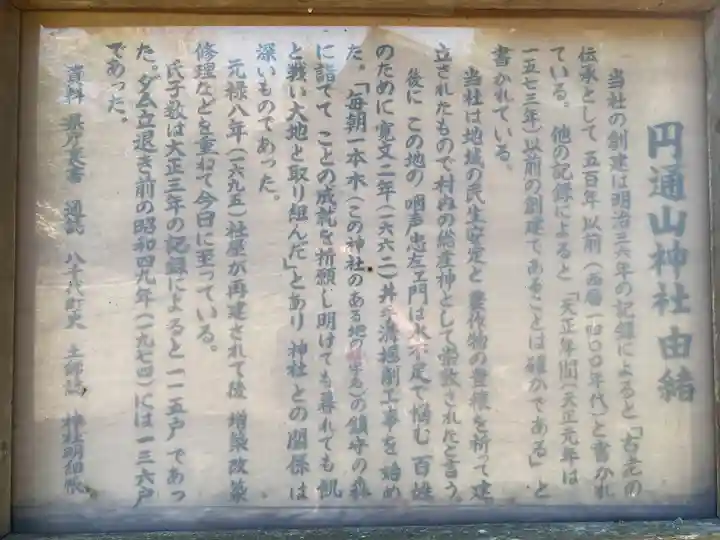 円通山神社 由緒
当社の創建は明治三六年の記録によると「古老の
伝承として 五百年以前(西暦一四〇〇年代)と書かれ
ている。 他の記録によると 「天正年間(天正元年は
一五七三年)以前の創建であることは確かである」と
書かれている。
当社は地域の民生安定と農作物の豊穣を祈って建
立されたもので村内の総産神として崇敬されたと言う。
後に この地の 咽声忠左ヱ門は水不足で悩む 百姓
のために 寛文二年(一六六二)井手溝掘削工事を 始め
た。「毎朝一本木(この神社のある地の)の鎮守の森
に詣でて ことの成就を祈願し明けても暮れても 飢
と戦い大地と取り組んだ」とあり 神社 との関係 は
深いものであった。
元禄八年(一六九五)社屋が再建されて後 増築 改築
修理などを重ねて今日に至っている。
氏子数は大正三年の記録によると一一五戸 であっ
た。ダム立退き前の昭和四九年(一九七四)には一三六戸
であった。
資料 県庁文書 通誌 八千代町史 土師誌 神社明細帳